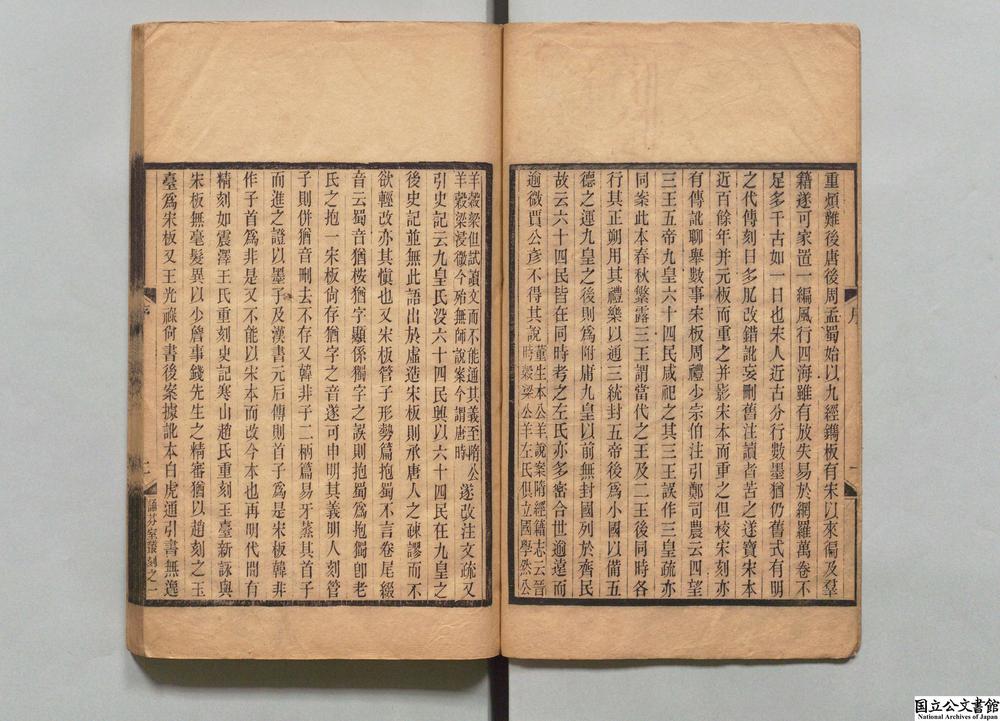 重煩難後唐後周孟蜀始以九經鐫板有宋以來傷及羣
籍遂可家置一編風行四海雖有放失易於網羅萬卷不
足多千古如一日也宋人近古分行數墨猶仍舊式有明
之代傳刻日多肊改錯訛妄刪舊注讀者苦之遂寶宋本
近百餘年并元板而重之并影宋本而重之但棱宋刻亦
有傳訛聊舉數事宋板周禮少宗伯注引鄭司農云四望
三王五帝九皇六十四民咸祀之其三王誤作三皇疏亦
同案此本春秋繁露三王謂當代之王及二王後同時各
行其正朔用其禮樂以通三統封五帝後爲小國以備五
德之運九皇之後則爲附庸九皇以前無封國列於齊民
故云六十四民皆在同時考之左氏亦多密合世逾遠而
逾微賈公彥不得其說董生本公羊說案隋經籍志云晉
時穀梁公羊左氏俱立國學然公
羊穀梁但試讀文而不能通其義至隋公
羊穀梁浸微今殆無師說案今謂唐時遂改注文疏又
引史記云九皇氏没六十四民興以六十四民在九皇之
後史記並無此語出於虛造宋板則承唐人之疎謬而不
欲輕改亦其愼也又宋板管子形勢篇抱蜀不言卷尾綴
音云蜀音猶桉猶字顯係獨字之誤則抱蜀爲抱獨卽老
氏之抱一宋板尙存猶字之音遂可申明其義明人刻管
子則併猶音刪去不存又韓非子二柄篇易牙蒸其首子
而進之證以墨子及漢書元后傳則首子爲是宋板韓非
作子首爲非是又不能以宋本而改今本也再明代間有
精刻如震澤王氏重刻史記寒山趙氏重刻玉臺新詠與
宋板無毫髮異以少詹事錢先生之精審猶以趙刻之玉
臺爲宋板又王光祿尙書後案據訛本白虎通引書無逸
序
一
序
二
誦芬室叢刻之一
国立公文書館
National Archives of Japan